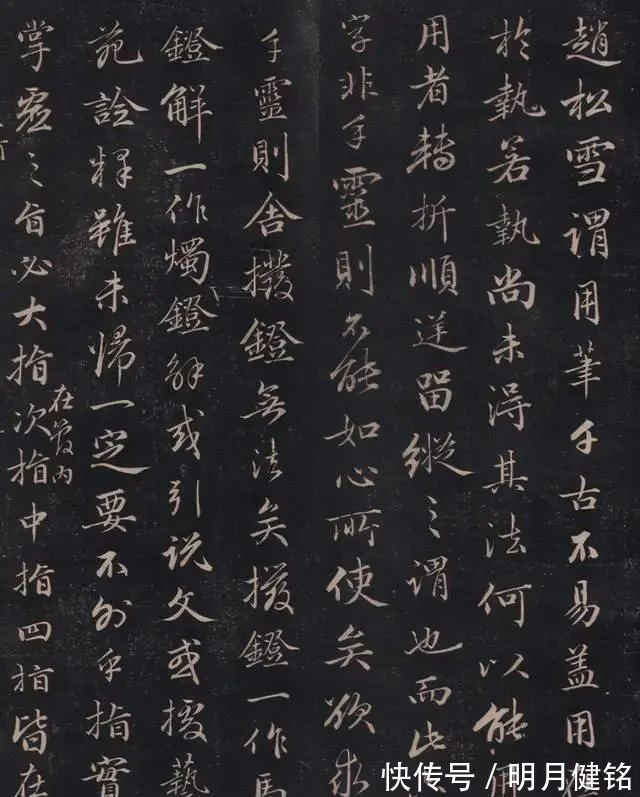 趙松雪謂用筆千古不易蓋用
於執若執尚未得其法何以能用
用者轉折順逆留縱之謂也而此
字非手靈則不能如心所使矣欲求
手靈則舍撥鐙無法矣撥鐙一作馬
鐙解一作燭鐙解或引說文或援藝
苑詮釋雖未歸一定要不外乎指實
掌虛之旨必大指次指在管內中指四指皆在
快传号 / 明月健铭